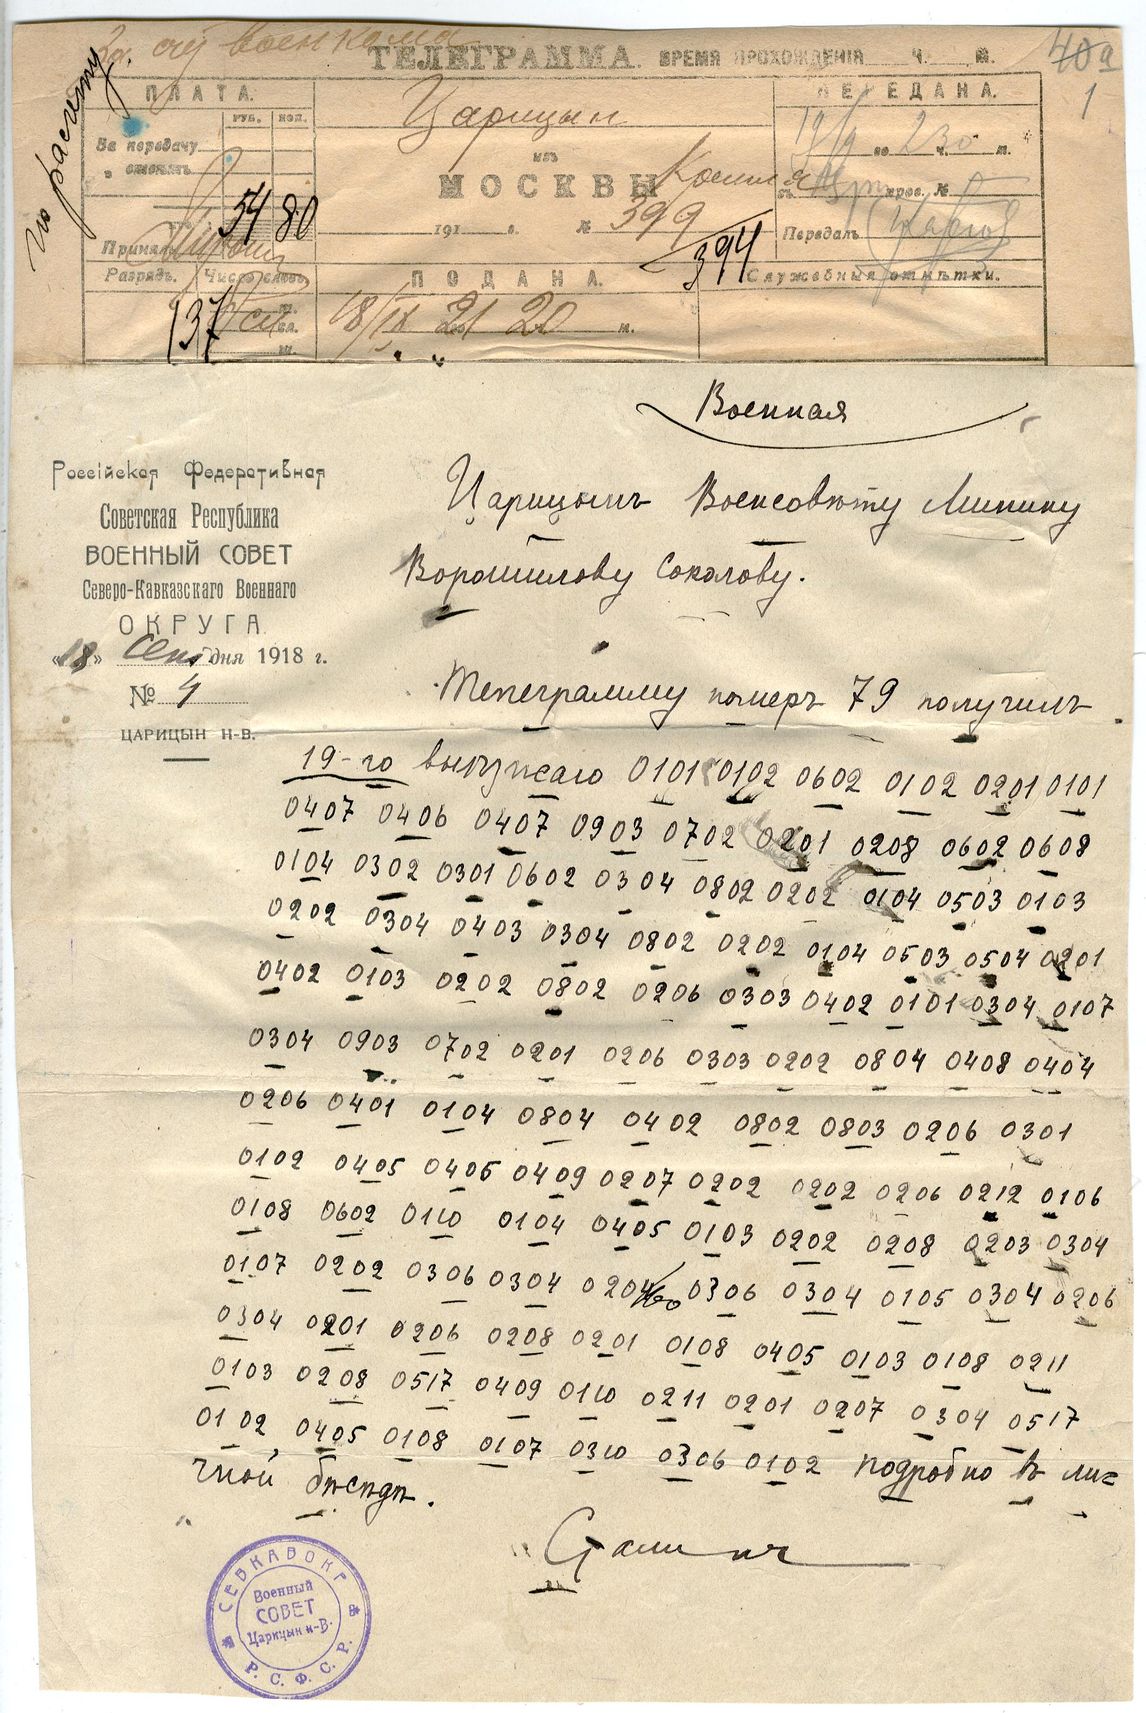 За сч. военкома
ТЕЛЕГРАММА. ВРЕМЯ ПРОХОЖДЕНІЯ Ч. М.
40а
1
по расчету
ПЛАТА.
РУБ. КОП.
За передачу
" отвѣтъ
54 80
Принялъ
Разрядъ. Число словъ
137
Царицын
изъ
МОСКВЫ Кремля
191 г. № 399
394
ПОДАНА.
18/IX 21 20 м.
ПЕРЕДАНА.
19/9 по 230 ч. м.
пров. №
Передалъ
Служебныя отмѣтки.
Военная
Россійская Федеративная
Советская Республика
ВОЕННЫЙ СОВЕТ
Северо-Кавказскаго Военнаго
ОКРУГА
«18» Сент дня 1918 г.
№ 4
ЦАРИЦЫН Н-В.
Царицынъ Военсовѣту Минину
Ворошилову Соколову.
Телеграмму номеръ 79 получилъ
19-го выѣзжаю 0101 0102 0602 0102 0201 0101
0407 0406 0407 0903 0702 0201 0208 0602 0608
0104 0302 0301 0602 0304 0802 0202 0104 0503 0103
0202 0304 0403 0304 0802 0202 0104 0503 0504 0201
0402 0103 0202 0802 0206 0303 0402 0101 0304 0107
0304 0903 0702 0201 0206 0303 0202 0804 0408 0404
0206 0401 0104 0804 0402 0802 0803 0206 0301
0102 0405 0406 0409 0207 0202 0202 0206 0212 0106
0108 0602 0110 0104 0405 0103 0202 0208 0203 0304
0107 0202 0306 0304 0204 0306 0304 0105 0304 0206
0304 0201 0206 0208 0201 0108 0405 0103 0108 0211
0103 0208 0517 0409 0110 0211 0201 0207 0304 0517
0102, 0405 0108 0107 0310 0306 0102 подробно въ ли=
чной бѣсѣдѣ.
Сталинъ
СЕВКАВОКР
Военный
СОВЕТ
Царицын н-В.
Р. С. Ф. С. Р.